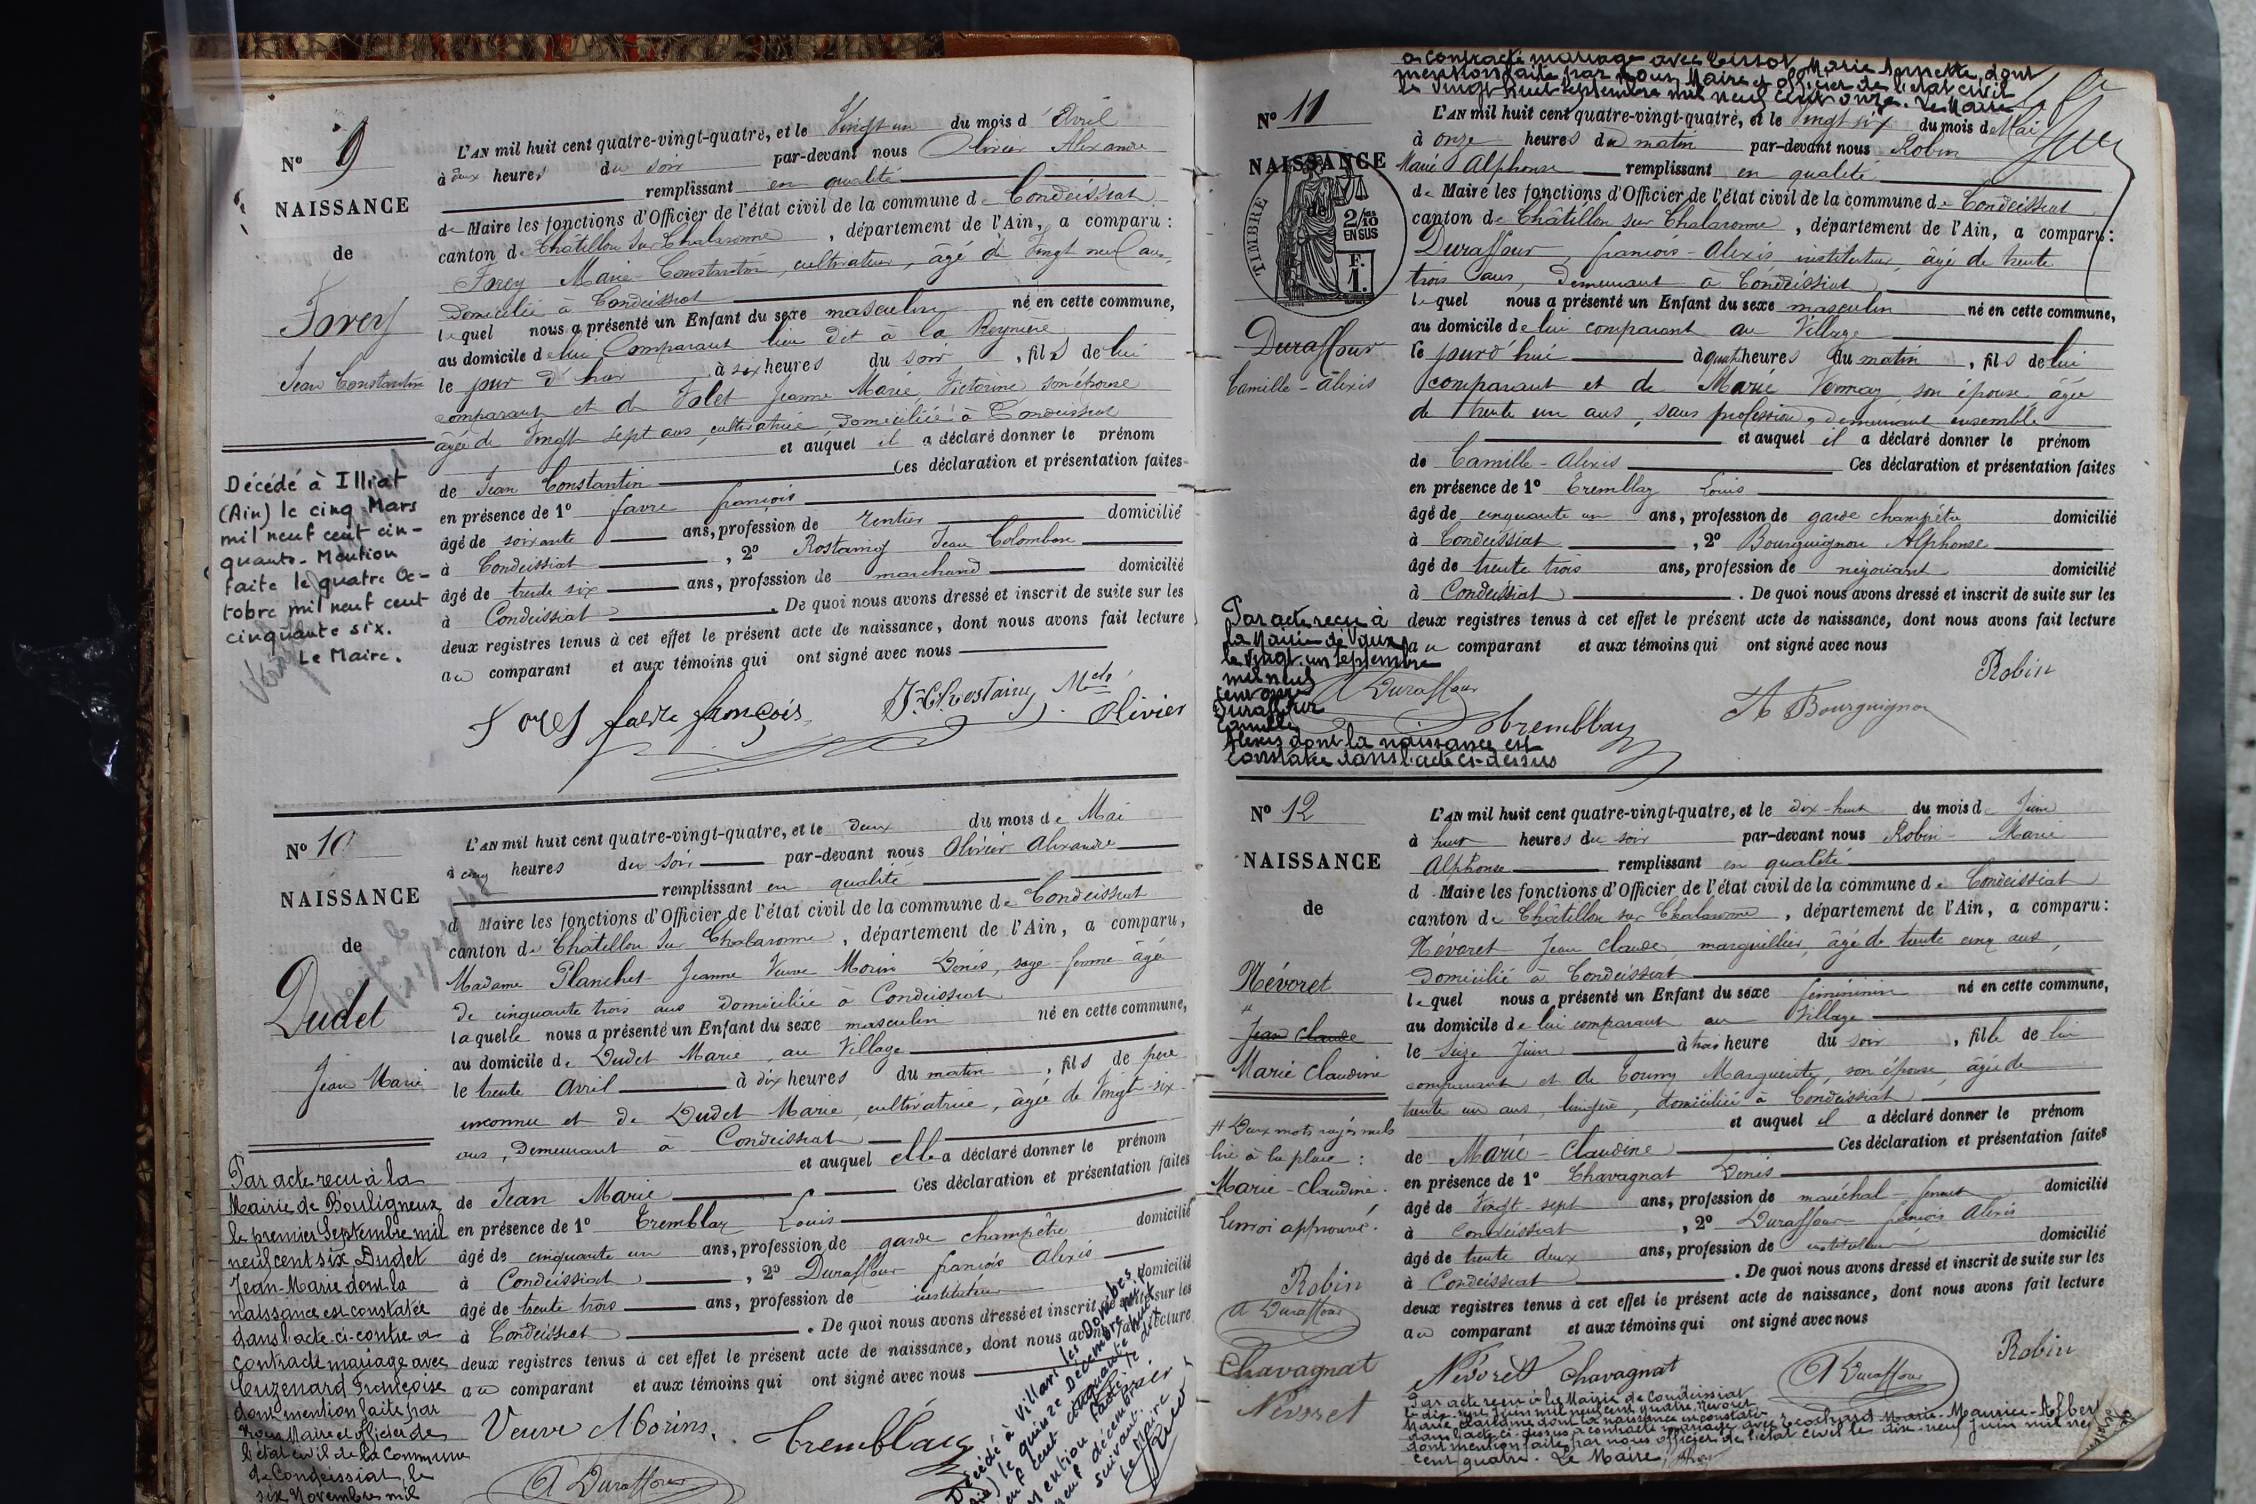 Nº 9
NAISSANCE
de
Forey
Jean Constantin
L'AN mil huit cent quatre-vingt-quatre, et le Vingt un du mois d'Avril
à deux heures du soir par-devant nous Olivier Alexandre
remplissant en qualité
de Maire les fonctions d'Officier de l'état civil de la commune de Condeissiat
canton de Châtillon sur Chalaronne, département de l'Ain, a comparu :
Forey Marie-Constantin, cultivateur, âgé de Vingt neuf ans,
domicilié à Condeissiat
lequel nous a présenté un Enfant du sexe masculin né en cette commune,
au domicile de lui comparant lieu dit à la Reynière
le jour d'hier à six heures du soir, fils de lui
comparant et de Jeanne Marie Victorine, son épouse
âgée de Vingt sept ans, cultivatrice, domiciliée à Condeissiat
et auquel il a déclaré donner le prénom
de Jean Constantin Ces déclaration et présentation faites
en présence de 1º favre françois
âgé de soixante ans, profession de rentier domicilié
à Condeissiat, 2º Rostaing Jean Colomban
âgé de trente six ans, profession de marchand domicilié
à Condeissiat. De quoi nous avons dressé et inscrit de suite sur les
deux registres tenus à cet effet le présent acte de naissance, dont nous avons fait lecture
au comparant et aux témoins qui ont signé avec nous
Forey favre françois Olivier
Décédé à Illiat
(Ain) le cinq Mars
mil neuf cent cin-
quante. Mention
faite le quatre Oc-
tobre mil neuf cent
cinquante six.
Le Maire.
Nº 10
NAISSANCE
de
Dudet
Jean Marie
L'AN mil huit cent quatre-vingt-quatre, et le deux du mois de Mai
à cinq heures du soir par-devant nous Olivier Alexandre
remplissant en qualité
d Maire les fonctions d'Officier de l'état civil de la commune de Condeissiat
canton de Châtillon sur Chalaronne, département de l'Ain, a comparu,
Madame Planchet Jeanne Veuve Morin Denis, sage-femme âgée
de cinquante trois ans domiciliée à Condeissiat
laquelle nous a présenté un Enfant du sexe masculin né en cette commune,
au domicile de Dudet Marie, au Village
le trente Avril à dix heures du matin, fils de père
inconnu et de Dudet Marie, cultivatrice, âgée de Vingt-six
ans, demeurant à Condeissiat
et auquel elle a déclaré donner le prénom
de Jean Marie Ces déclaration et présentation faites
en présence de 1º Tremblay Louis
âgé de cinquante un ans, profession de garde champêtre domicilié
à Condeissiat, 2º Duraffour françois Alexis
âgé de trente trois ans, profession de instituteur domicilié
à Condeissiat. De quoi nous avons dressé et inscrit de suite sur les
deux registres tenus à cet effet le présent acte de naissance, dont nous avons fait lecture
au comparant et aux témoins qui ont signé avec nous
Veuve Morin. Tremblay
A Duraffour
Par acte reçu à la
Mairie de Bouligneux
le premier Septembre mil
neuf cent six Dudet
Jean-Marie dont la
naissance est constatée
dans l'acte ci-contre a
contracté mariage avec
Cuzenard Françoise
dont mention faite par
Nous Maire et officier de
l'état civil de la Commune
de Condeissiat, le
six Novembre mil
Décédé à Villars les Dombes
le quinze Décembre mil
neuf cent cinquante huit
Mention faite le
neuf décembre
suivant.
Le Maire
a contracté mariage avec Tissot Marie Annette, dont
mention faite par nous, Maire et officier de l'état civil
le vingt huit septembre mil neuf cent onze. Le Maire
Nº 11
NAISSANCE
de
TIMBRE
2/10
EN SUS
F.
1.
Duraffour
Camille-Alexis
L'AN mil huit cent quatre-vingt-quatre, et le Vingt six du mois de Mai
à onze heures du matin par-devant nous Robin
Marie Alphonse remplissant en qualité
de Maire les fonctions d'Officier de l'état civil de la commune de Condeissiat
canton de Châtillon sur Chalaronne, département de l'Ain, a comparu :
Duraffour, françois-Alexis instituteur, âgé de trente
trois ans, demeurant à Condeissiat,
lequel nous a présenté un Enfant du sexe masculin né en cette commune,
au domicile de lui comparant au Village
le jourd'hui à quatre heures du matin, fils de lui
comparant et de Marie Vernay, son épouse, âgée
de trente un ans, sans profession, demeurant ensemble
et auquel il a déclaré donner le prénom
de Camille-Alexis Ces déclaration et présentation faites
en présence de 1º Tremblay Louis
âgé de cinquante un ans, profession de garde champêtre domicilié
à Condeissiat, 2º Bourguignon Alphonse
âgé de trente trois ans, profession de négociant domicilié
à Condeissiat. De quoi nous avons dressé et inscrit de suite sur les
deux registres tenus à cet effet le présent acte de naissance, dont nous avons fait lecture
au comparant et aux témoins qui ont signé avec nous
Robin
A Duraffour Tremblay A Bourguignon
Par acte reçu à
la Mairie de Vaux
le vingt-un septembre
mil neuf
cent onze
Duraffour
Camille
Alexis dont la naissance est
constatée dans l'acte ci-dessus
Nº 12
NAISSANCE
de
Névoret
#
Jean Claude
Marie Claudine
L'AN mil huit cent quatre-vingt-quatre, et le dix-huit du mois de Juin
à huit heures du soir par-devant nous Robin Marie
Alphonse remplissant en qualité
d Maire les fonctions d'Officier de l'état civil de la commune de Condeissiat
canton de Châtillon sur Chalaronne, département de l'Ain, a comparu :
Névoret Jean Claude, marguillier, âgé de trente cinq ans,
domicilié à Condeissiat
lequel nous a présenté un Enfant du sexe féminin né en cette commune,
au domicile de lui comparant au Village
le seize Juin à trois heure du soir, fille de lui
comparant et de Marguerite, son épouse, âgée de
trente un ans, lingère, domiciliée à Condeissiat
et auquel il a déclaré donner le prénom
de Marie-Claudine Ces déclaration et présentation faites
en présence de 1º Chavagnat Denis
âgé de Vingt-sept ans, profession de maréchal-ferrant domicilié
à Condeissiat, 2º Duraffour françois Alexis
âgé de trente deux ans, profession de instituteur domicilié
à Condeissiat. De quoi nous avons dressé et inscrit de suite sur les
deux registres tenus à cet effet le présent acte de naissance, dont nous avons fait lecture
au comparant et aux témoins qui ont signé avec nous
Névoret Chavagnat A Duraffour Robin
# Deux mots rayés nuls
lire à la place :
Marie-Claudine.
Renvoi approuvé.
Robin
A Duraffour
Chavagnat
Névoret
Par acte reçu à la Mairie de Condeissiat
le dix-sept Juin mil neuf cent quatre, Névoret
Marie Claudine dont la naissance est constatée
dans l'acte ci-dessus a contracté mariage avec Marie-Maurice-Albert
dont mention faite par nous officier de l'état civil le dix-neuf Juin mil neuf
cent quatre. Le Maire,